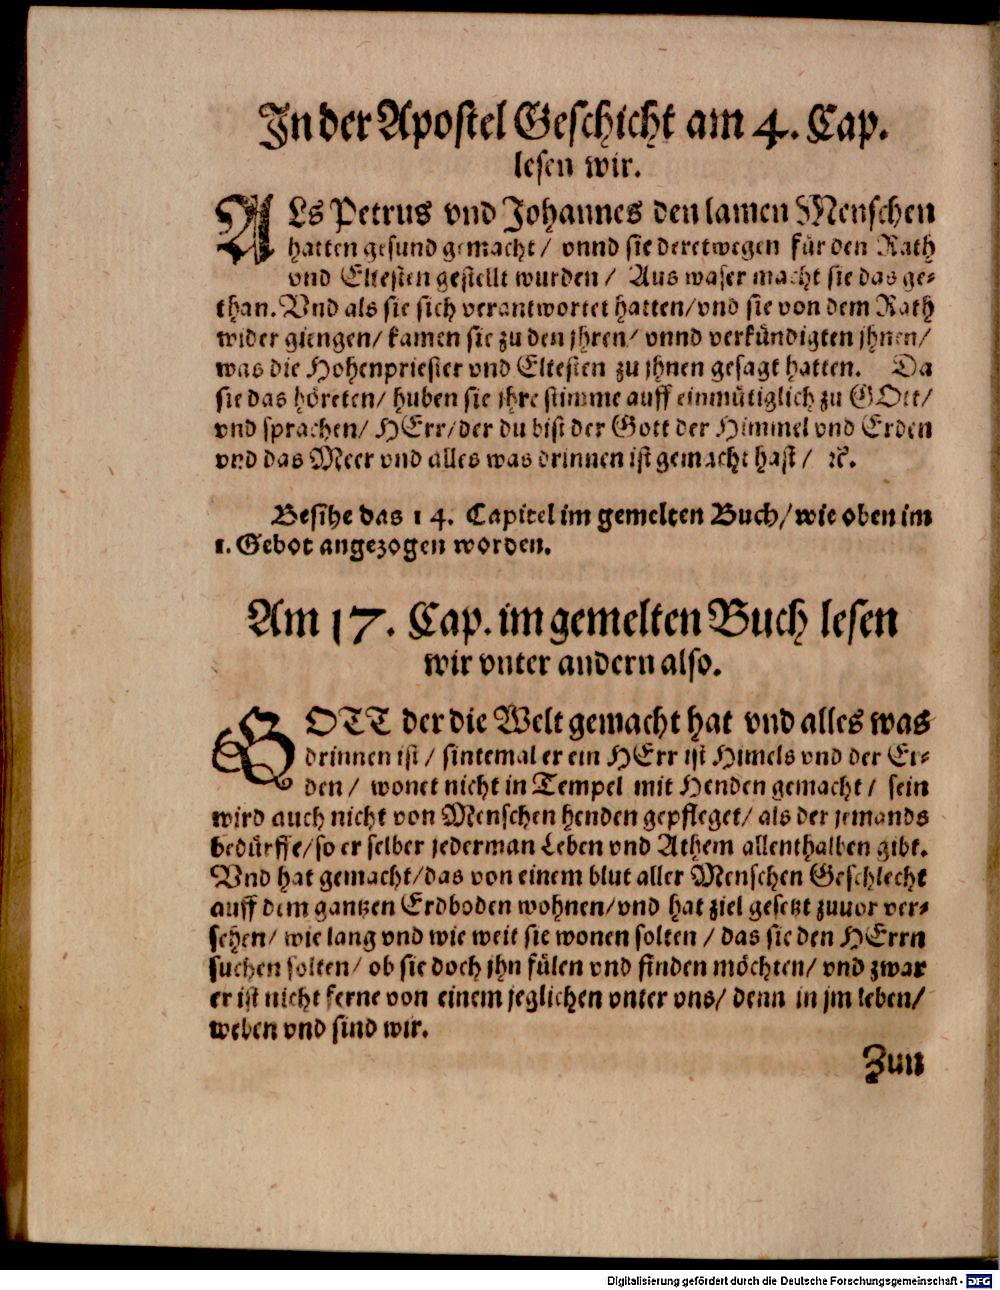 In der Apostel Geschicht am 4. Cap.
lesen wir.
ALs Petrus vnd Johannes den lamen Menschen
hatten gesund gemacht / vnnd sie deretwegen für den Rath
vnd Eltesten gestellt wurden / Aus waser macht sie das ge-
than. Vnd als sie sich verantwortet hatten/ vnd sie von dem Rath
wider giengen/ kamen sie zu den jhren/ vnnd verkündigten jhnen/
was die Hohenpriester vnd Eltesten zu jhnen gesagt hatten. Da
sie das höreten/ huben sie jhre stimme auff einmütiglich zu GOtt/
vnd sprachen/ HErr/ der du bist der Gott der Himmel vnd Erden
vnd das Meer vnd alles was drinnen ist gemacht hast / ꝛc.
Besihe das 14. Capitel im gemelten Buch/ wie oben im
1. Gebot angezogen worden.
Am 17. Cap. im gemelten Buch lesen
wir vnter andern also.
GOTT der die Welt gemacht hat vnd alles was
drinnen ist / sintemal er ein HErr ist Himels vnd der Er-
den / wonet nicht in Tempel mit Henden gemacht / sein
wird auch nicht von Menschen henden gepfleget/ als der jemands
bedürffe/ so er selber jederman Leben vnd Athem allenthalben gibt.
Vnd hat gemacht/ das von einem blut aller Menschen Geschlecht
auff dem gantzen Erdboden wohnen/ vnd hat ziel gesetzt zuuor ver-
sehen/ wie lang vnd wie weit sie wonen solten / das sie den HErrn
suchen solten/ ob sie doch jhn fülen vnd finden möchten/ vnd zwar
er ist nicht ferne von einem jeglichen vnter vns/ denn in jm leben/
weben vnd sind wir.
Zun
Digitalisierung gefördert durch die Deutsche Forschungsgemeinschaft - DFG